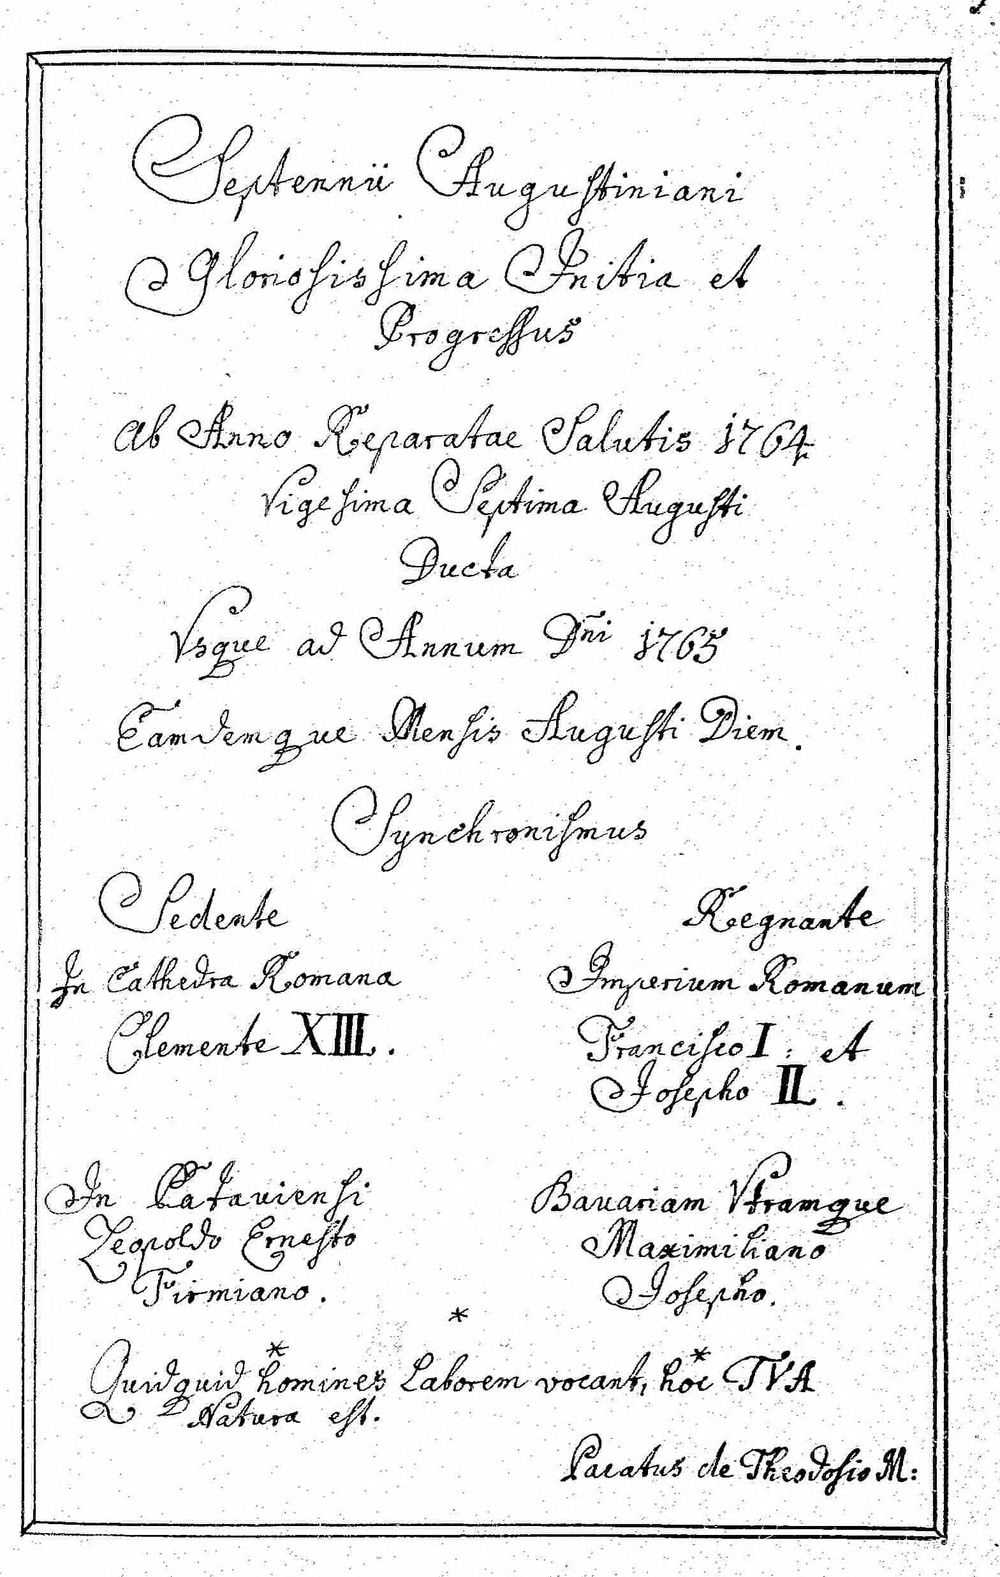 Septennii Augustiniani
Gloriosissima Initia et
Progressus
Ab Anno Reparatae Salutis 1764
Vigesima Septima Augusti
Ducta
Vsque ad Annum Dñi 1765
Eamdemque Mensis Augusti Diem.
Synchronismus
Sedente
In Cathedra Romana
Clemente XIII.
In Pataviensi
Leopoldo Ernesto
Firmiano.
Regnante
Imperium Romanum
Francisco I: et
Josepho II.
Bavariam Vtramque
Maximiliano
Josepho.
*
* *
Quidquid homines Laborem vocant, hoc TVA
Natura est.
Pacatus de Theodosio M: